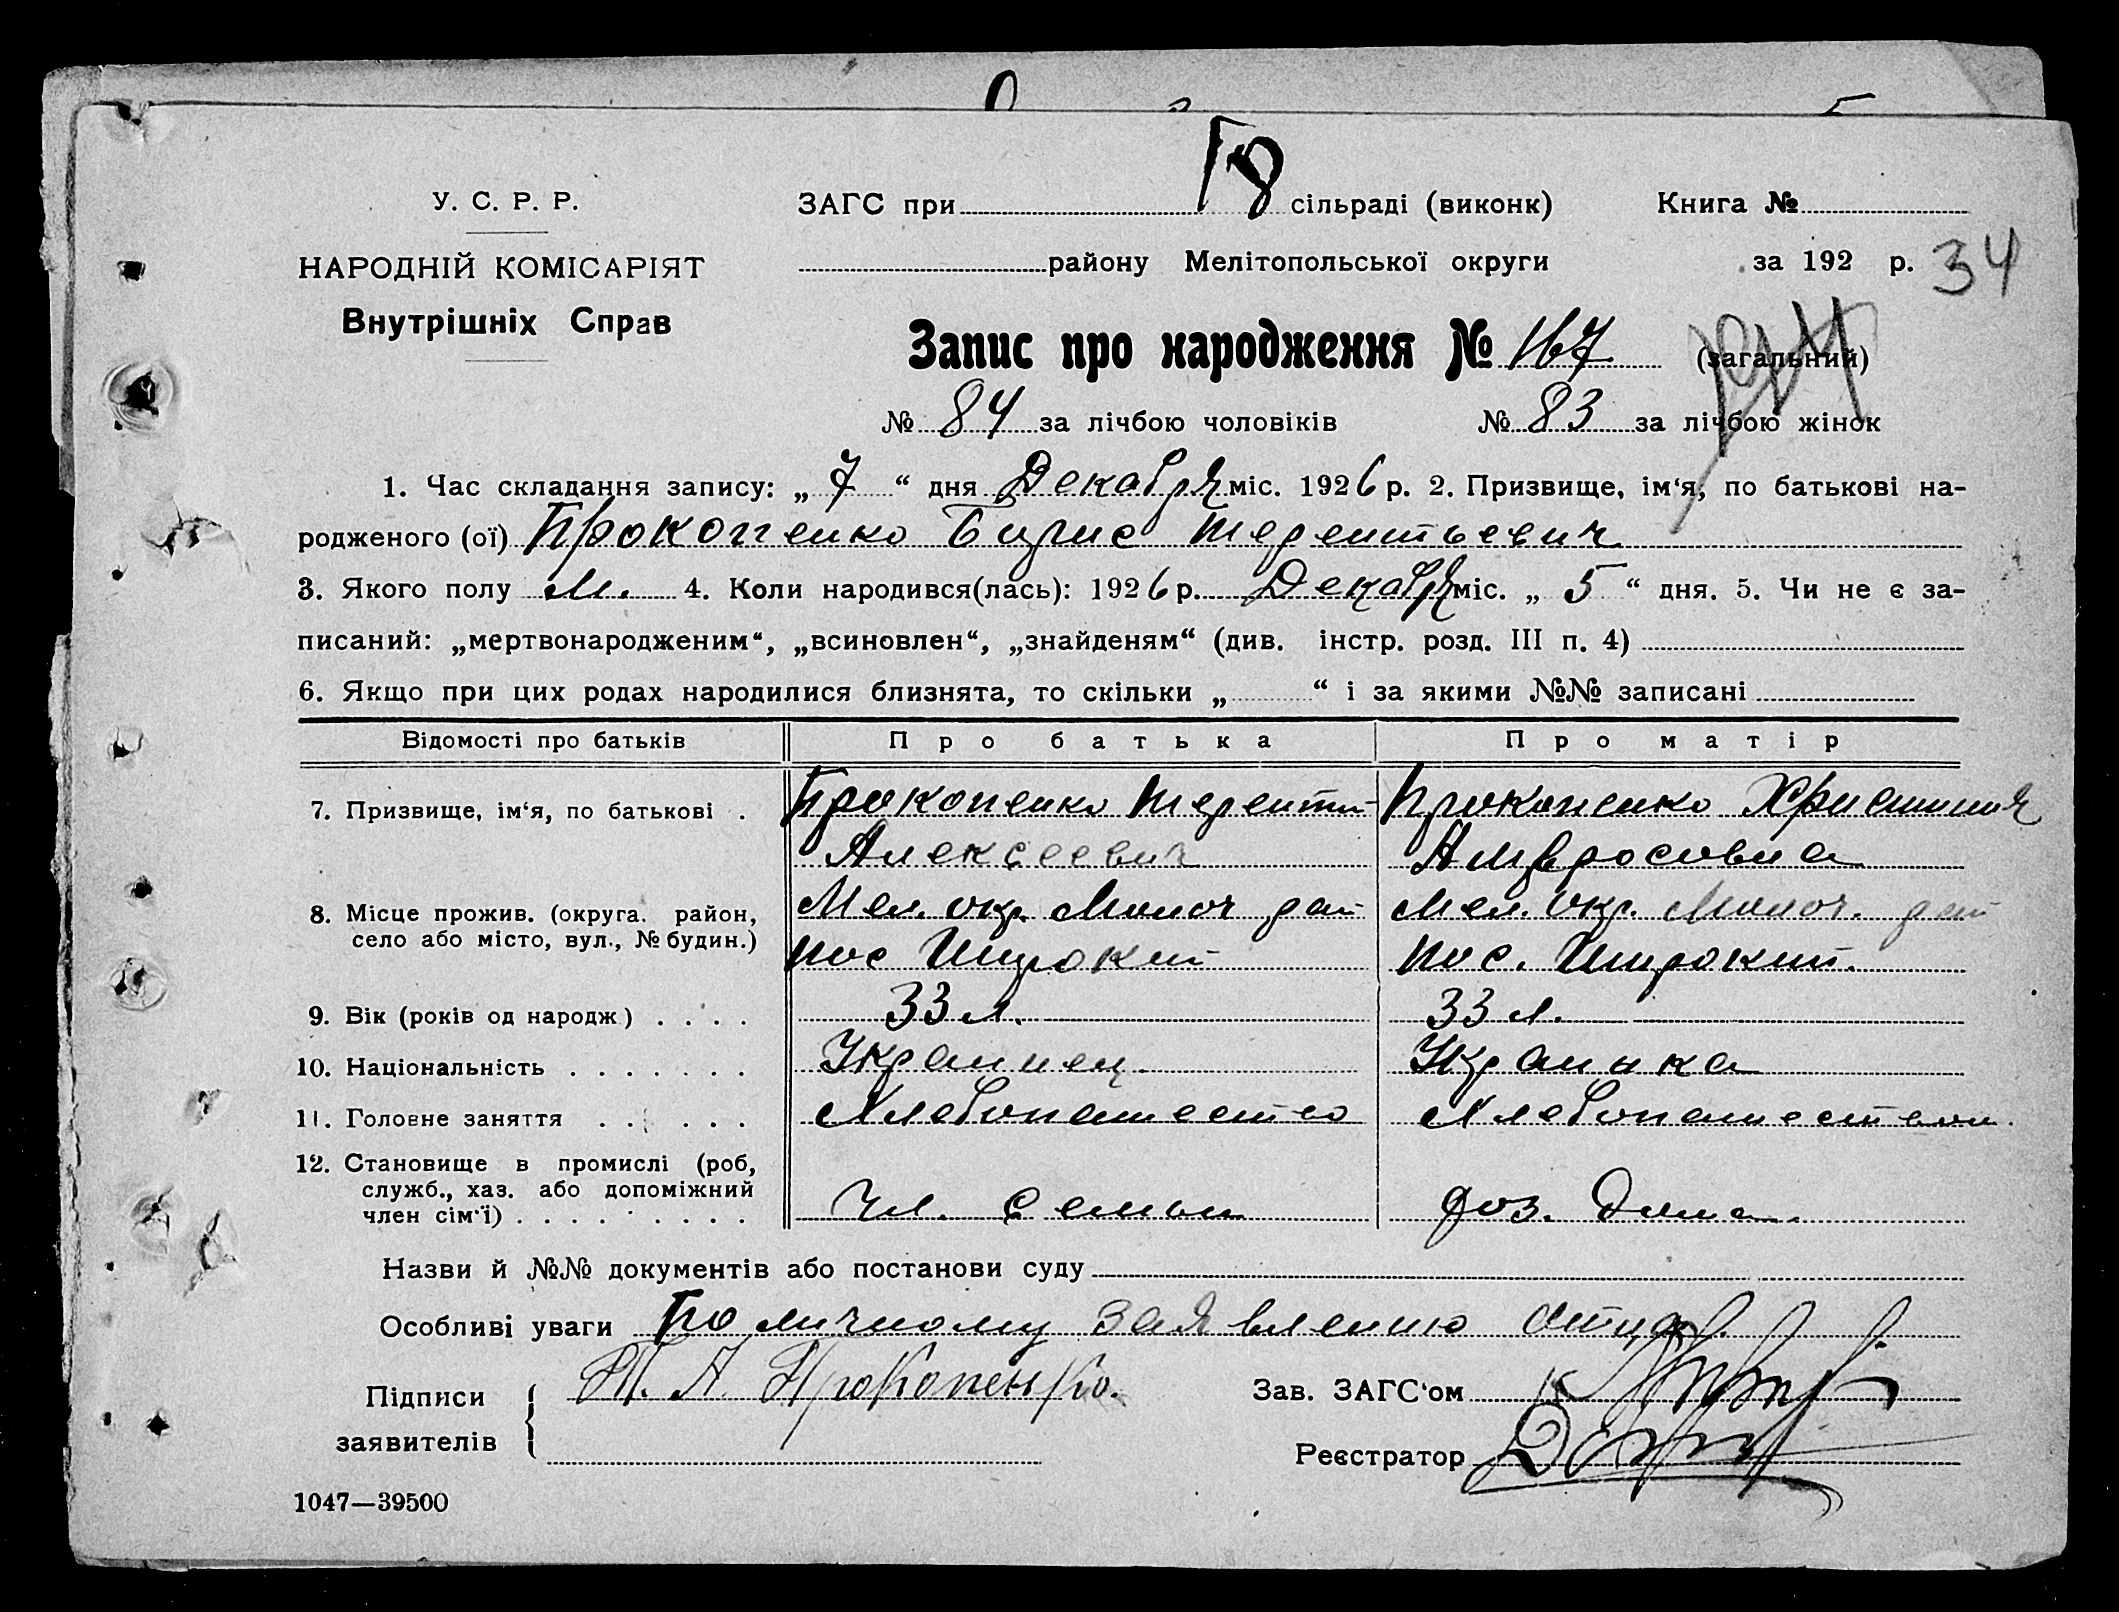 У. С. Р. Р.
НАРОДНІЙ КОМІСАРІЯТ
Внутрішніх Справ
ЗАГС при сільраді (виконк) Книга №
району Мелітопольської округи за 192 р. 34
Запис про народження № 167 (загальний)
№ 84 за лічбою чоловіків № 83 за лічбою жінок
1. Час складання запису: „ 7 “ дня Декабря міс. 1926 р. 2. Призвище, ім‘я, по батькові на-
родженого (ої) Прокопенко Борис Терентьевич
3. Якого полу М. 4. Коли народився(лась): 1926 р. Декабря міс. „ 5 “ дня. 5. Чи не є за-
писаний: „мертвонародженим“, „всиновлен“, „знайденям“ (див. інстр. розд. III п. 4)
6. Якщо при цих родах народилися близнята, то скільки „ “ і за якими №№ записані
Відомості про батьків Про батька Про матір
7. Призвище, ім‘я, по батькові . Прокопенко Терентий Прокопенко Христиния
Алексеевич Амвросовна
8. Місце прожив. (округа, район, Мел. окр. Молоч рай Мел. Окр. Молоч. рай
село або місто, вул., № будин.) пос Широкий пос. Широкий.
9. Вік (років од народж) . . . . 33 л. 33 л.
10. Національність . . . . . . . Украинец Украинка
11. Головне заняття . . . . . . Хлебопашество Хлебопашеством.
12. Становище в промислі (роб,
служб., хаз. або допоміжний
член сім‘ї) . . . . . . . . . Чл. Семьи Дома.
Назви й №№ документів або постанови суду
Особливі уваги По личному заявлению отца.
Підписи Т. А. Прокопенко. Зав. ЗАГС‘ом
заявителів Реєстратор
1047—39500